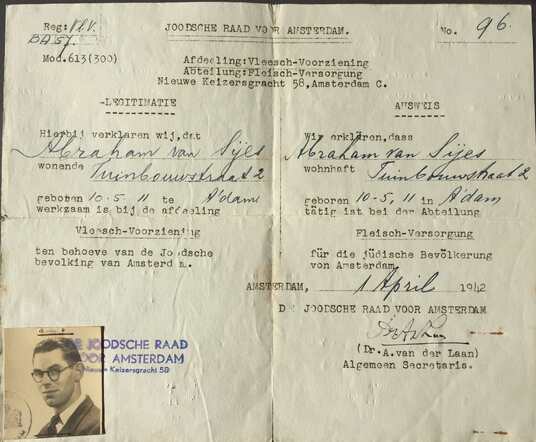 Reg: Vl.V.
BA 57.
JOODSCHE RAAD VOOR AMSTERDAM.
No. 96.
Mod.613(300)
Afdeeling:Vleesch-Voorziening
Abteilung:Fleisch-Versorgung
Nieuwe Keizersgracht 58, Amsterdam C.
LEGITIMATIE
Hierbij verklaren wij,dat
Abraham van Sijes
wonende Tuinbouwstraat 2
geboren 10-5, 11 te A'dam
werkzaam is bij de afdeeling
Vleesch-Voorziening
ten behoeve van de Joodsche
bevolking van Amsterdam.
AUSWEIS
Wir erklären,dass
Abraham van Sijes
wohnhaft Tuinbouwstraat 2
geboren 10-5, 11 in A'dam
tätig ist bei der Abteilung
Fleisch-Versorgung
für die jüdische Bevölkerung
von Amsterdam.
AMSTERDAM, 1 April 1942
DE JOODSCHE RAAD VOOR AMSTERDAM
(Dr.A.van der Laan)
Algemeen Secretaris.
DE JOODSCHE RAAD
VOOR AMSTERDAM
Nieuwe Keizersgracht 58